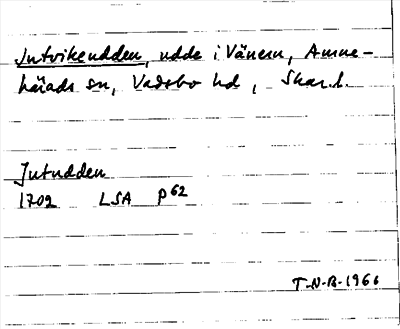 Jutvikeudden, udde i Vänern, Amne-
härads sn, Vadsbo hd, Skar.l.
Jutudden
1702 LSA P62
T-N-B-1966